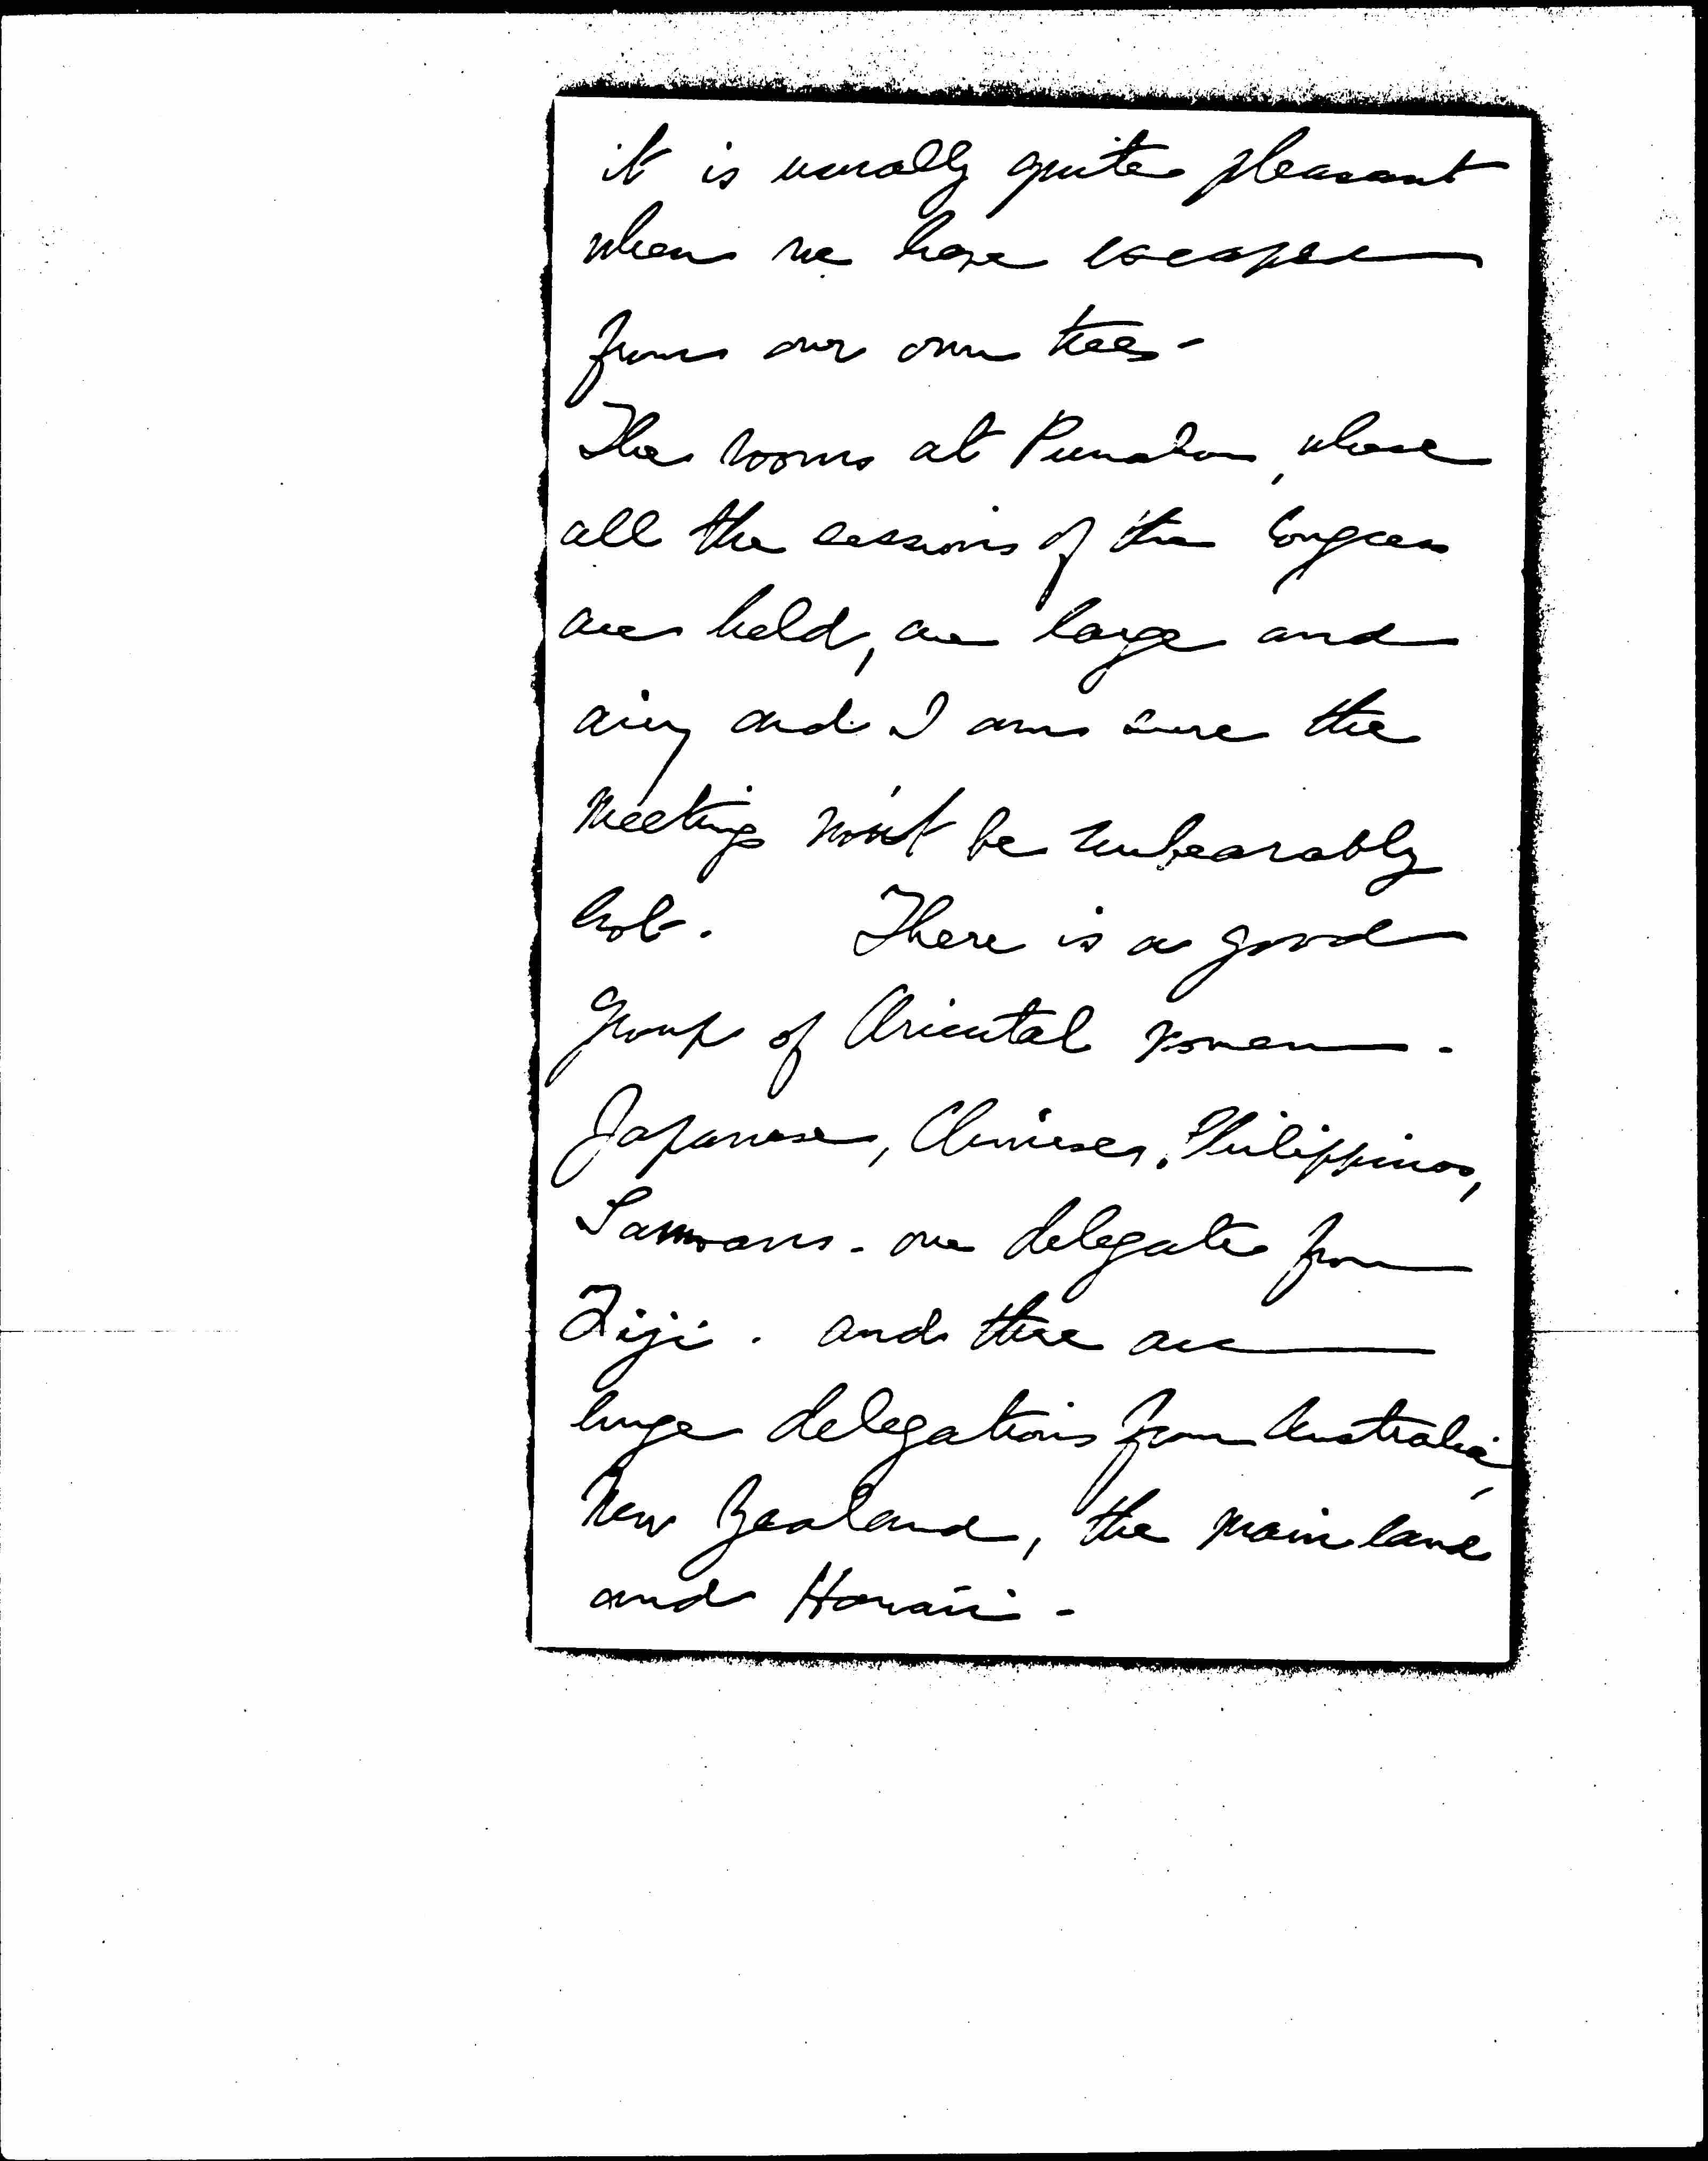 it is usually quite pleasant
when we have escaped
from our own trees -
The rooms at Punahou, where
all the sessions of the Congress
are held, are large and
airy and I am sure the
meetings won't be unbearably
hot. There is a good
group of Oriental women -
Japanese, Chinese, Philippinos,
Samoans - one delegate from
Fiji. and there are
huge delegations from Australia,
New Zealand, the main land
and Hawaii -